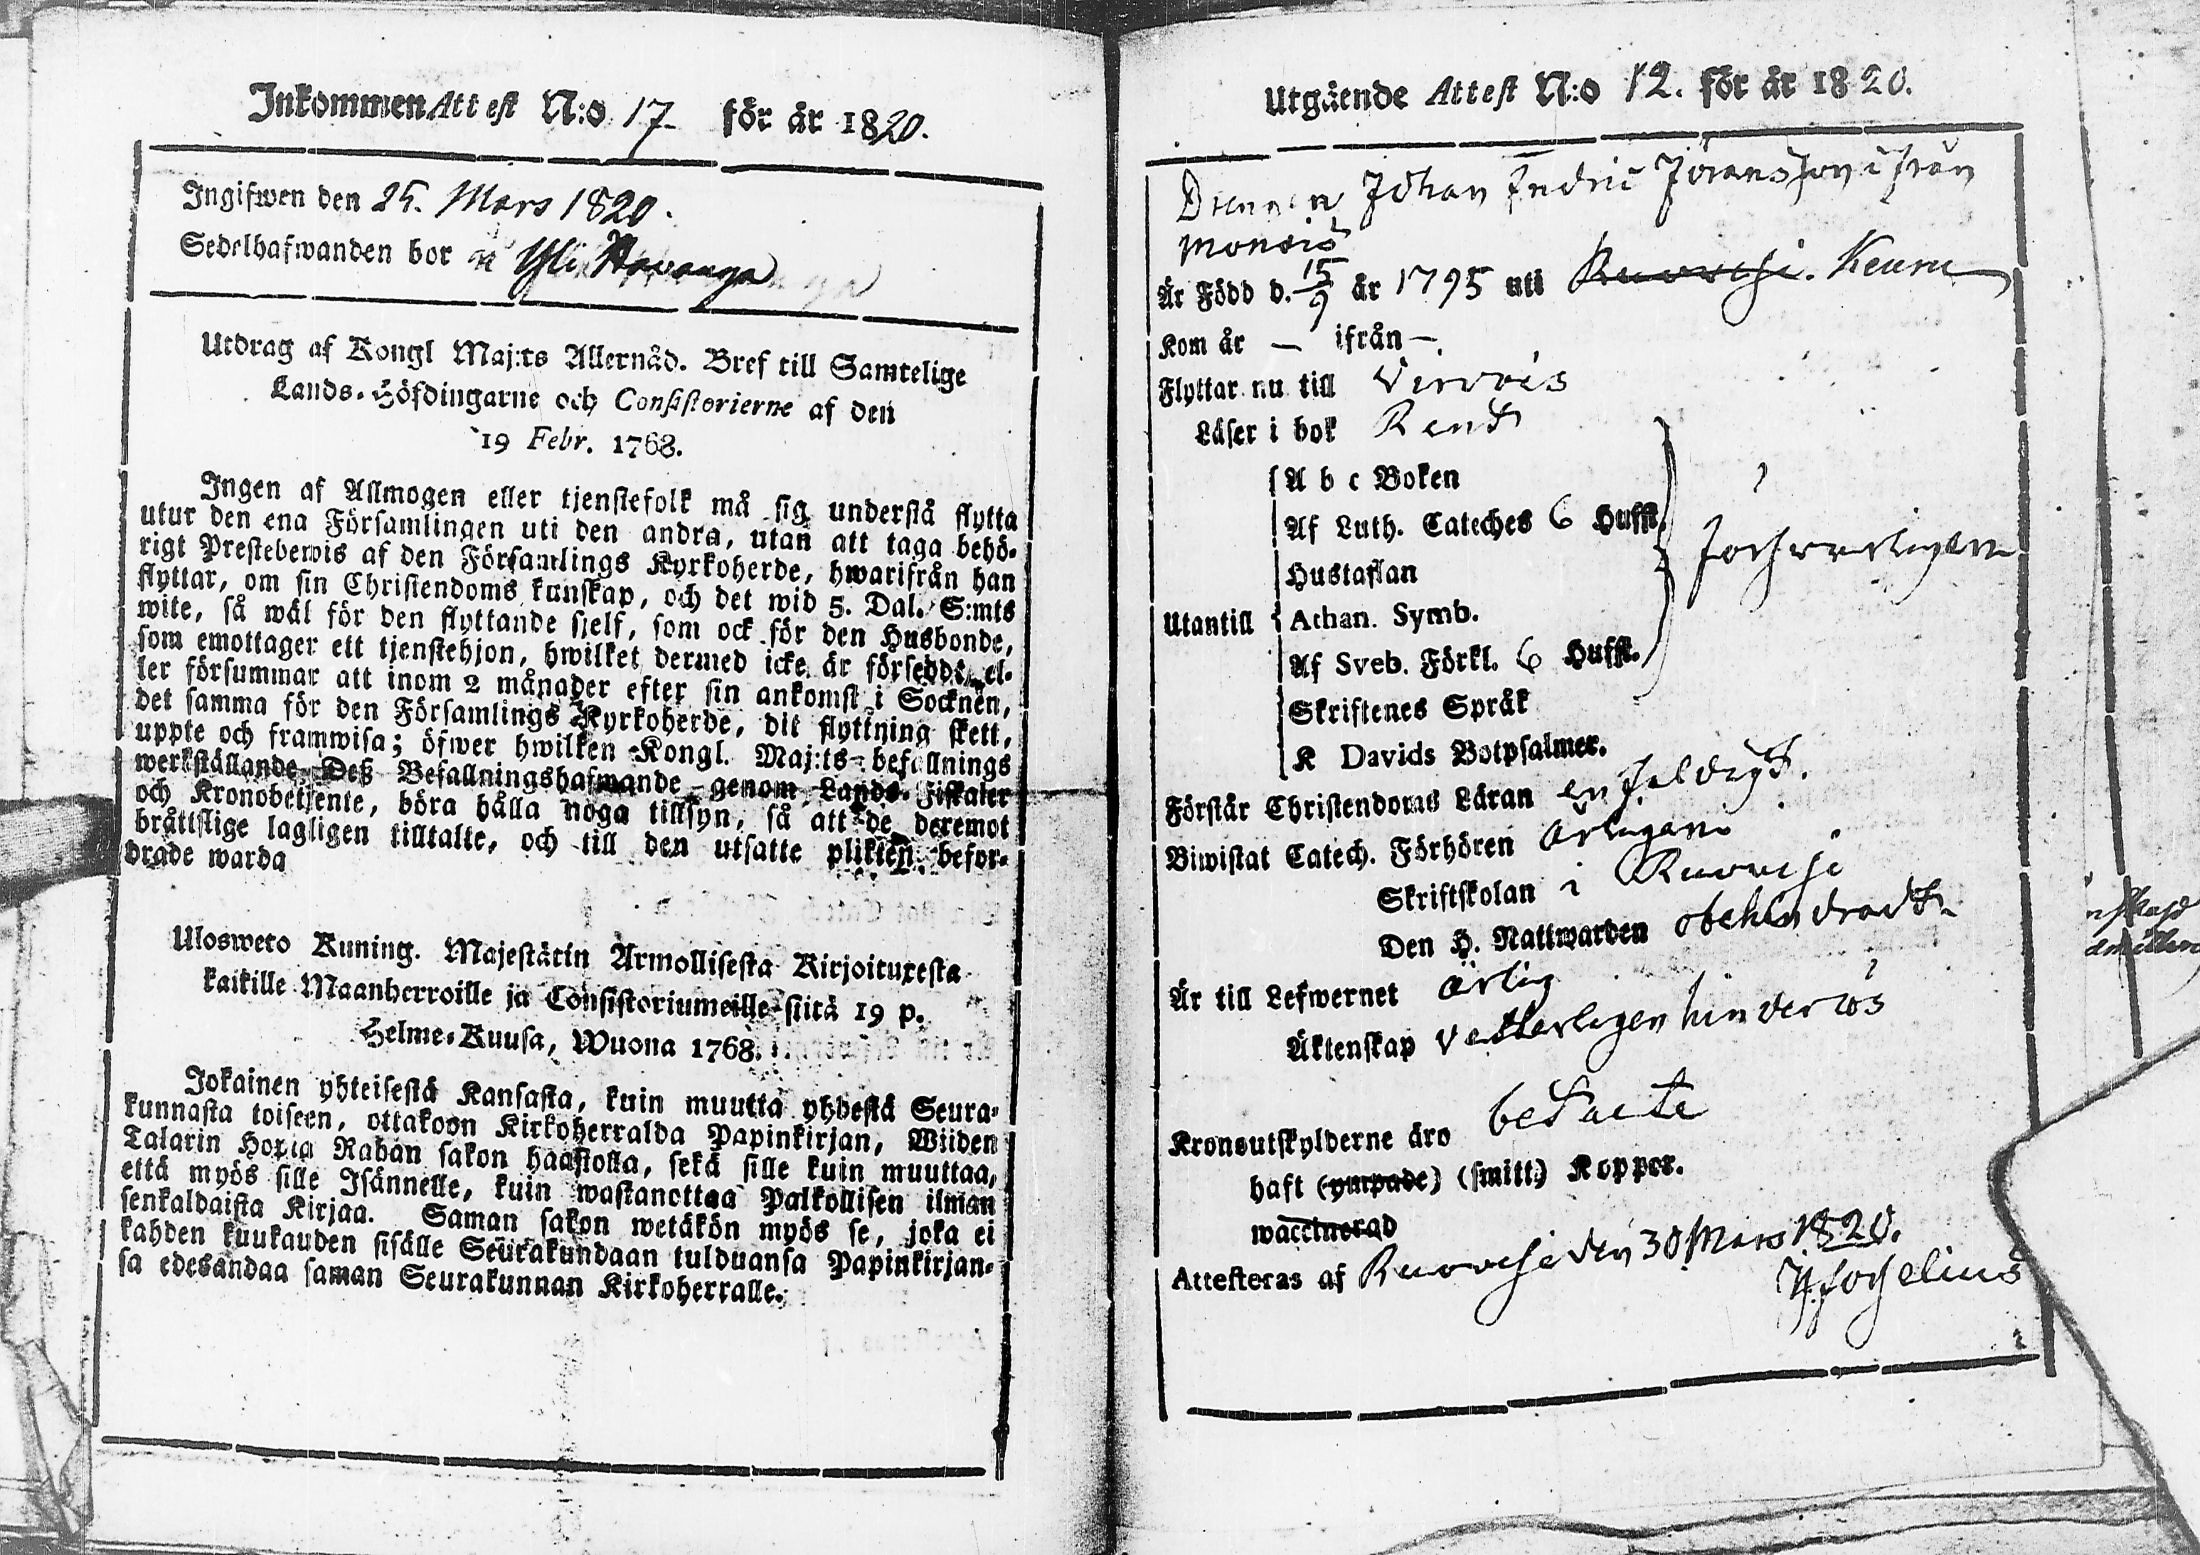 Inkommen Attest N:o 17. för år 1820.
Ingifwen den 25. Mars 1820.
Sedelhafwanden bor
Utdrag af Kongl Maj:ts Allernåd. Bref till Samtelige
Lands-Höfdingarne och Consistorierne af den
19 Febr. 1768.
Ingen af Allmogen eller tjenstefolk må sig understå flytta
utur den ena Församlingen uti den andra, utan att taga behö-
rigt Prestebewis af den Församlings Kyrkoherde, hwarifrån han
flyttar, om sin Christendoms kunskap, och det wid 5. Dal. S:mts
wite, så wäl för den flyttande sjelf, som ock för den Husbonde,
som emottager ett tjenstehjon, hwilket dermed icke är försedt, el-
ler försummar att inom 2 månader efter sin ankomst i Socknen,
det samma för den Församlings Kyrkoherde, dit flyttning skett,
uppte och framwisa; öfwer hwilken Kongl. Maj:ts befallnings
werkställande Deß Befallningshafwande genom Lands-Fiskaler
och Kronobetjente, böra hålla noga tillsyn, så att de deremot
bråttslige lagligen tilltalte, och till den utsatte plikten befor-
drade warda
Ulosweto Kuning. Majestätin Armollisesta Kirjoituxesta
kaikille Maanherroille ja Consistoriumeille siitä 19 p.
Helme-Kuusa, Wuona 1768.
Jokainen yhteisestä Kansasta, kuin muutta yhdestä Seura-
kunnasta toiseen, ottakoon Kirkoherralda Papinkirjan, Wiiden
Talarin Hopia Rahan sakon haastolla, sekä sille kuin muuttaa,
että myös sille Isännelle, kuin wastanottaa Palkollisen ilman
senkaldaista Kirjaa. Saman sakon wetäkön myös se, joka ei
kahden kuukauden sisälle Seurakundaan tulduansa Papinkirjan-
sa edesandaa saman Seurakunnan Kirkoherralle.
Utgående Attest N:o 12. för år 1820.
Drengen Johan Indric Jöransson ifrån
Är Född d. 15/9 år 1795 uti Ruovesi. Keuru
Kom år — ifrån —.
Flyttar nu till Virdois
Läser i bok Rent
A b c Boken
Af Luth. Cateches 6 Hufst.
Hustaflan
Utantill Athan. Symb.
Af Sveb. Förkl. 6 Hufst.
Skriftenes Språk
K Davids Botpsalmer.
Förstår Christendoms Läran enfaldigt.
Biwistat Catech. Förhören årligen
Skriftskolan i Ruovesi
Den H. Nattwarden obehindradt
Är till Lefwernet ärlig
Äktenskap vetterligen hinderlös
Kronoutskylderne äro betalte
haft (ympade) (smitt.) Koppor.
waccinerad
Attesteras af Ruovesi den 30 Mars 1820.